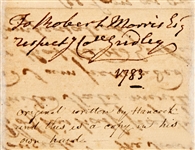 To Robert Morris Esq
respects Coll Gridley
1783
original written by Hancock
and this is a copy in his
own hand.